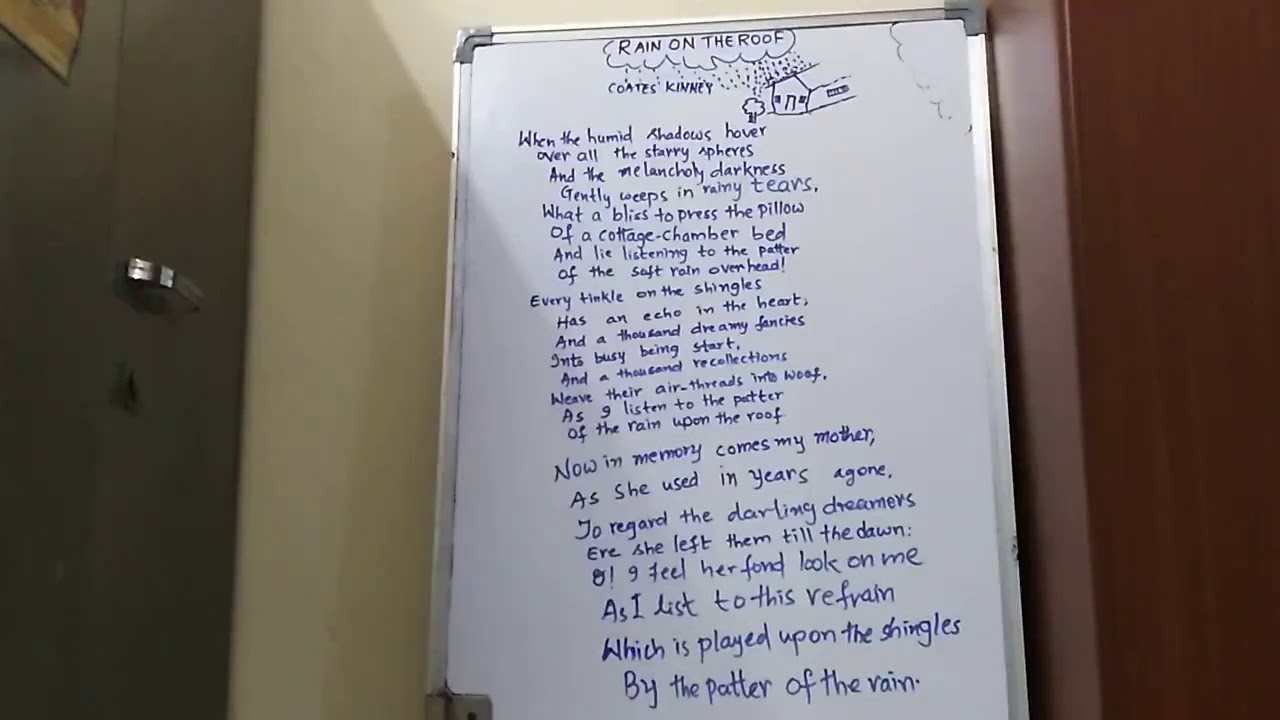 RAIN ON THE ROOF
COATES' KINNEY
When the humid shadows hover
over all the starry spheres
And the melancholy darkness
Gently weeps in rainy tears,
What a bliss to press the pillow
Of a cottage-chamber bed
And lie listening to the patter
Of the soft rain overhead!
Every tinkle on the shingles
Has an echo in the heart;
And a thousand dreamy fancies
Into busy being start,
And a thousand recollections
Weave their air-threads into woof,
As I listen to the patter
Of the rain upon the roof
Now in memory comes my mother,
As She used in years agone,
To regard the darling dreamers
Ere she left them till the dawn:
O! I feel her fond look on me
As I list to this refrain
Which is played upon the shingles
By the patter of the rain.